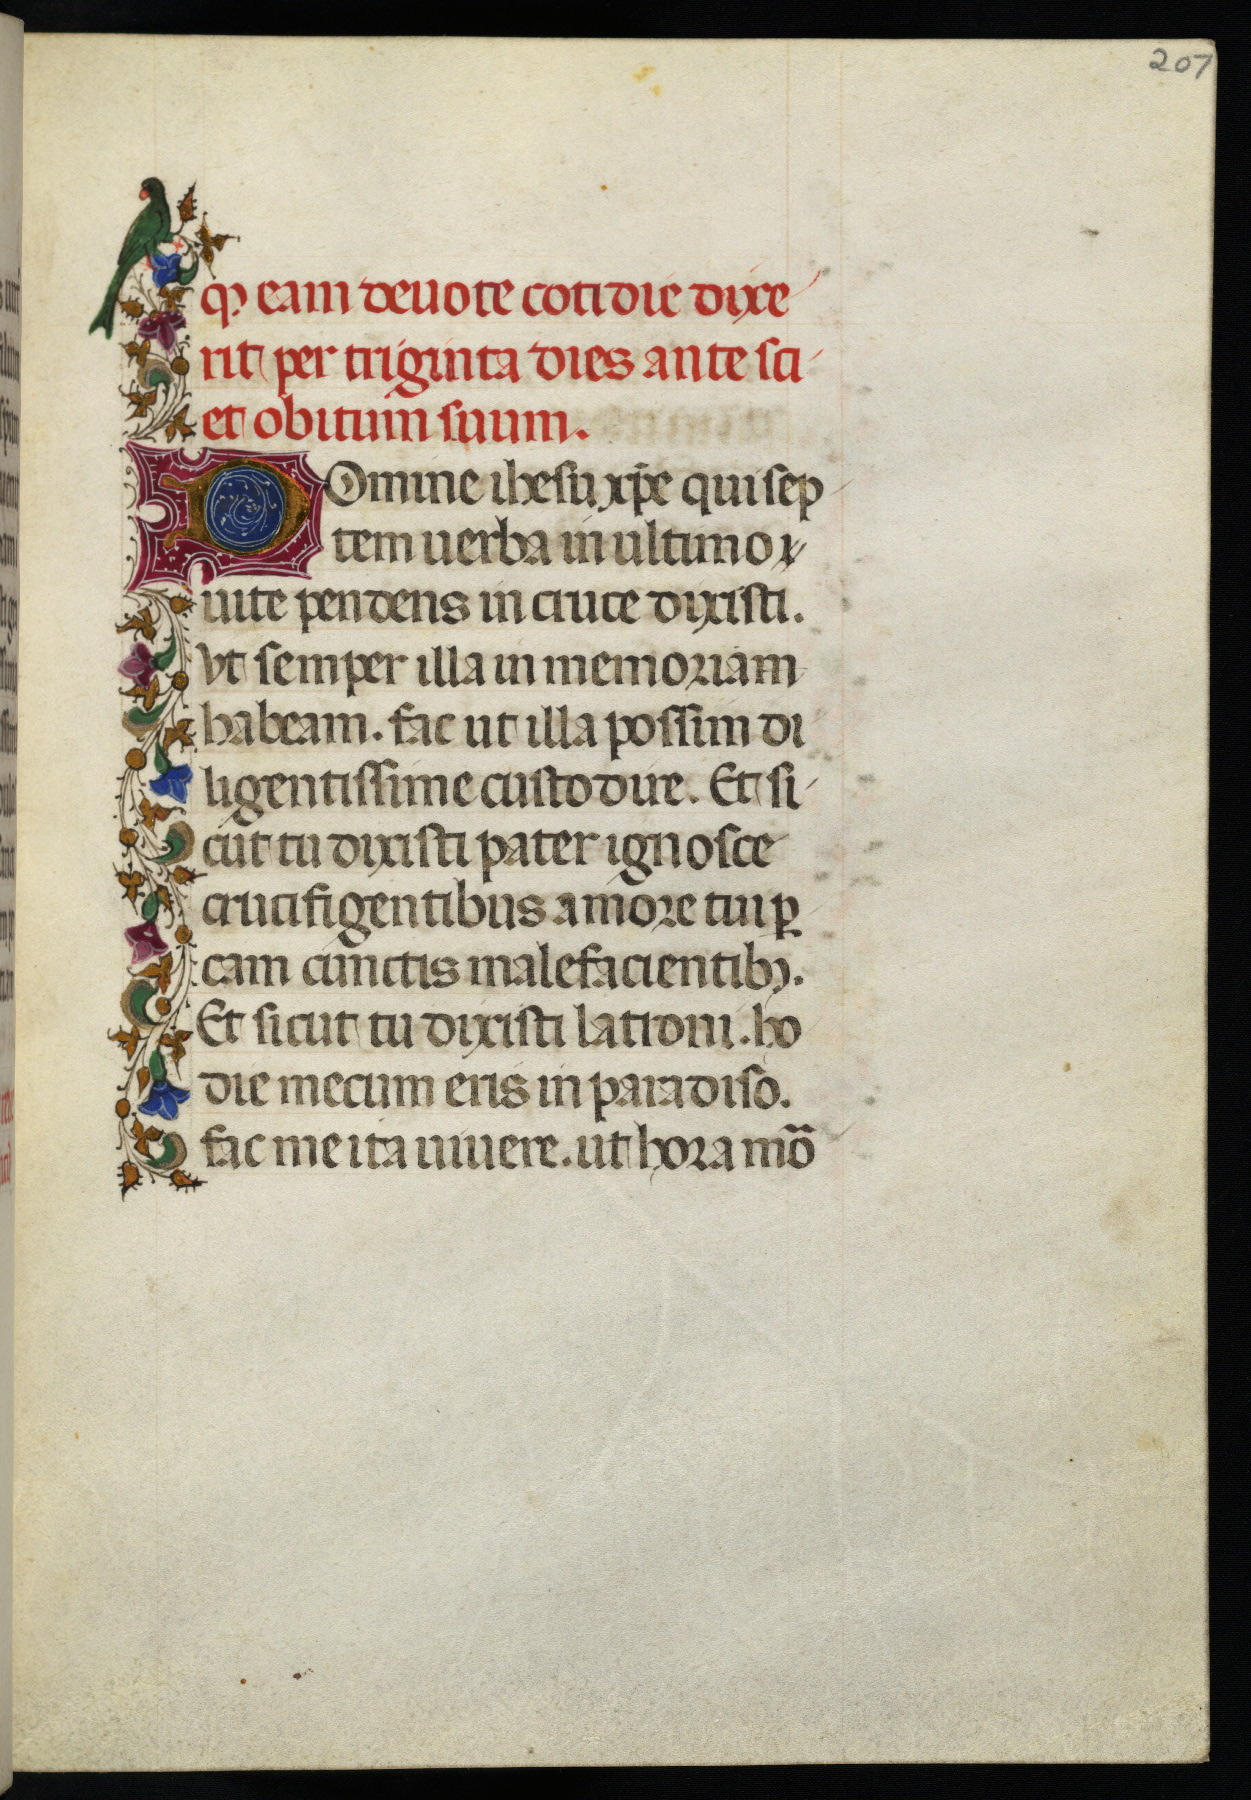 207
qꝫ eam deuote cotidie dixe
rit per triginta dies ante sci
et obitum suum.
DOmine ihesu xp̄e qui sep
tem uerba in ultimo
uite pendens in cruce dixisti.
Vt semper illa in memoriam
habeam. fac ut illa possim di
ligentissime custodire. Et si
cut tu dixisti pater ignosce
crucifigentibus amore tui ꝑ
cam cunctis malefacientibꝫ.
Et sicut tu dixisti latroni. ho
die mecum eris in paradiso.
fac me ita uiuere. ut hora mō